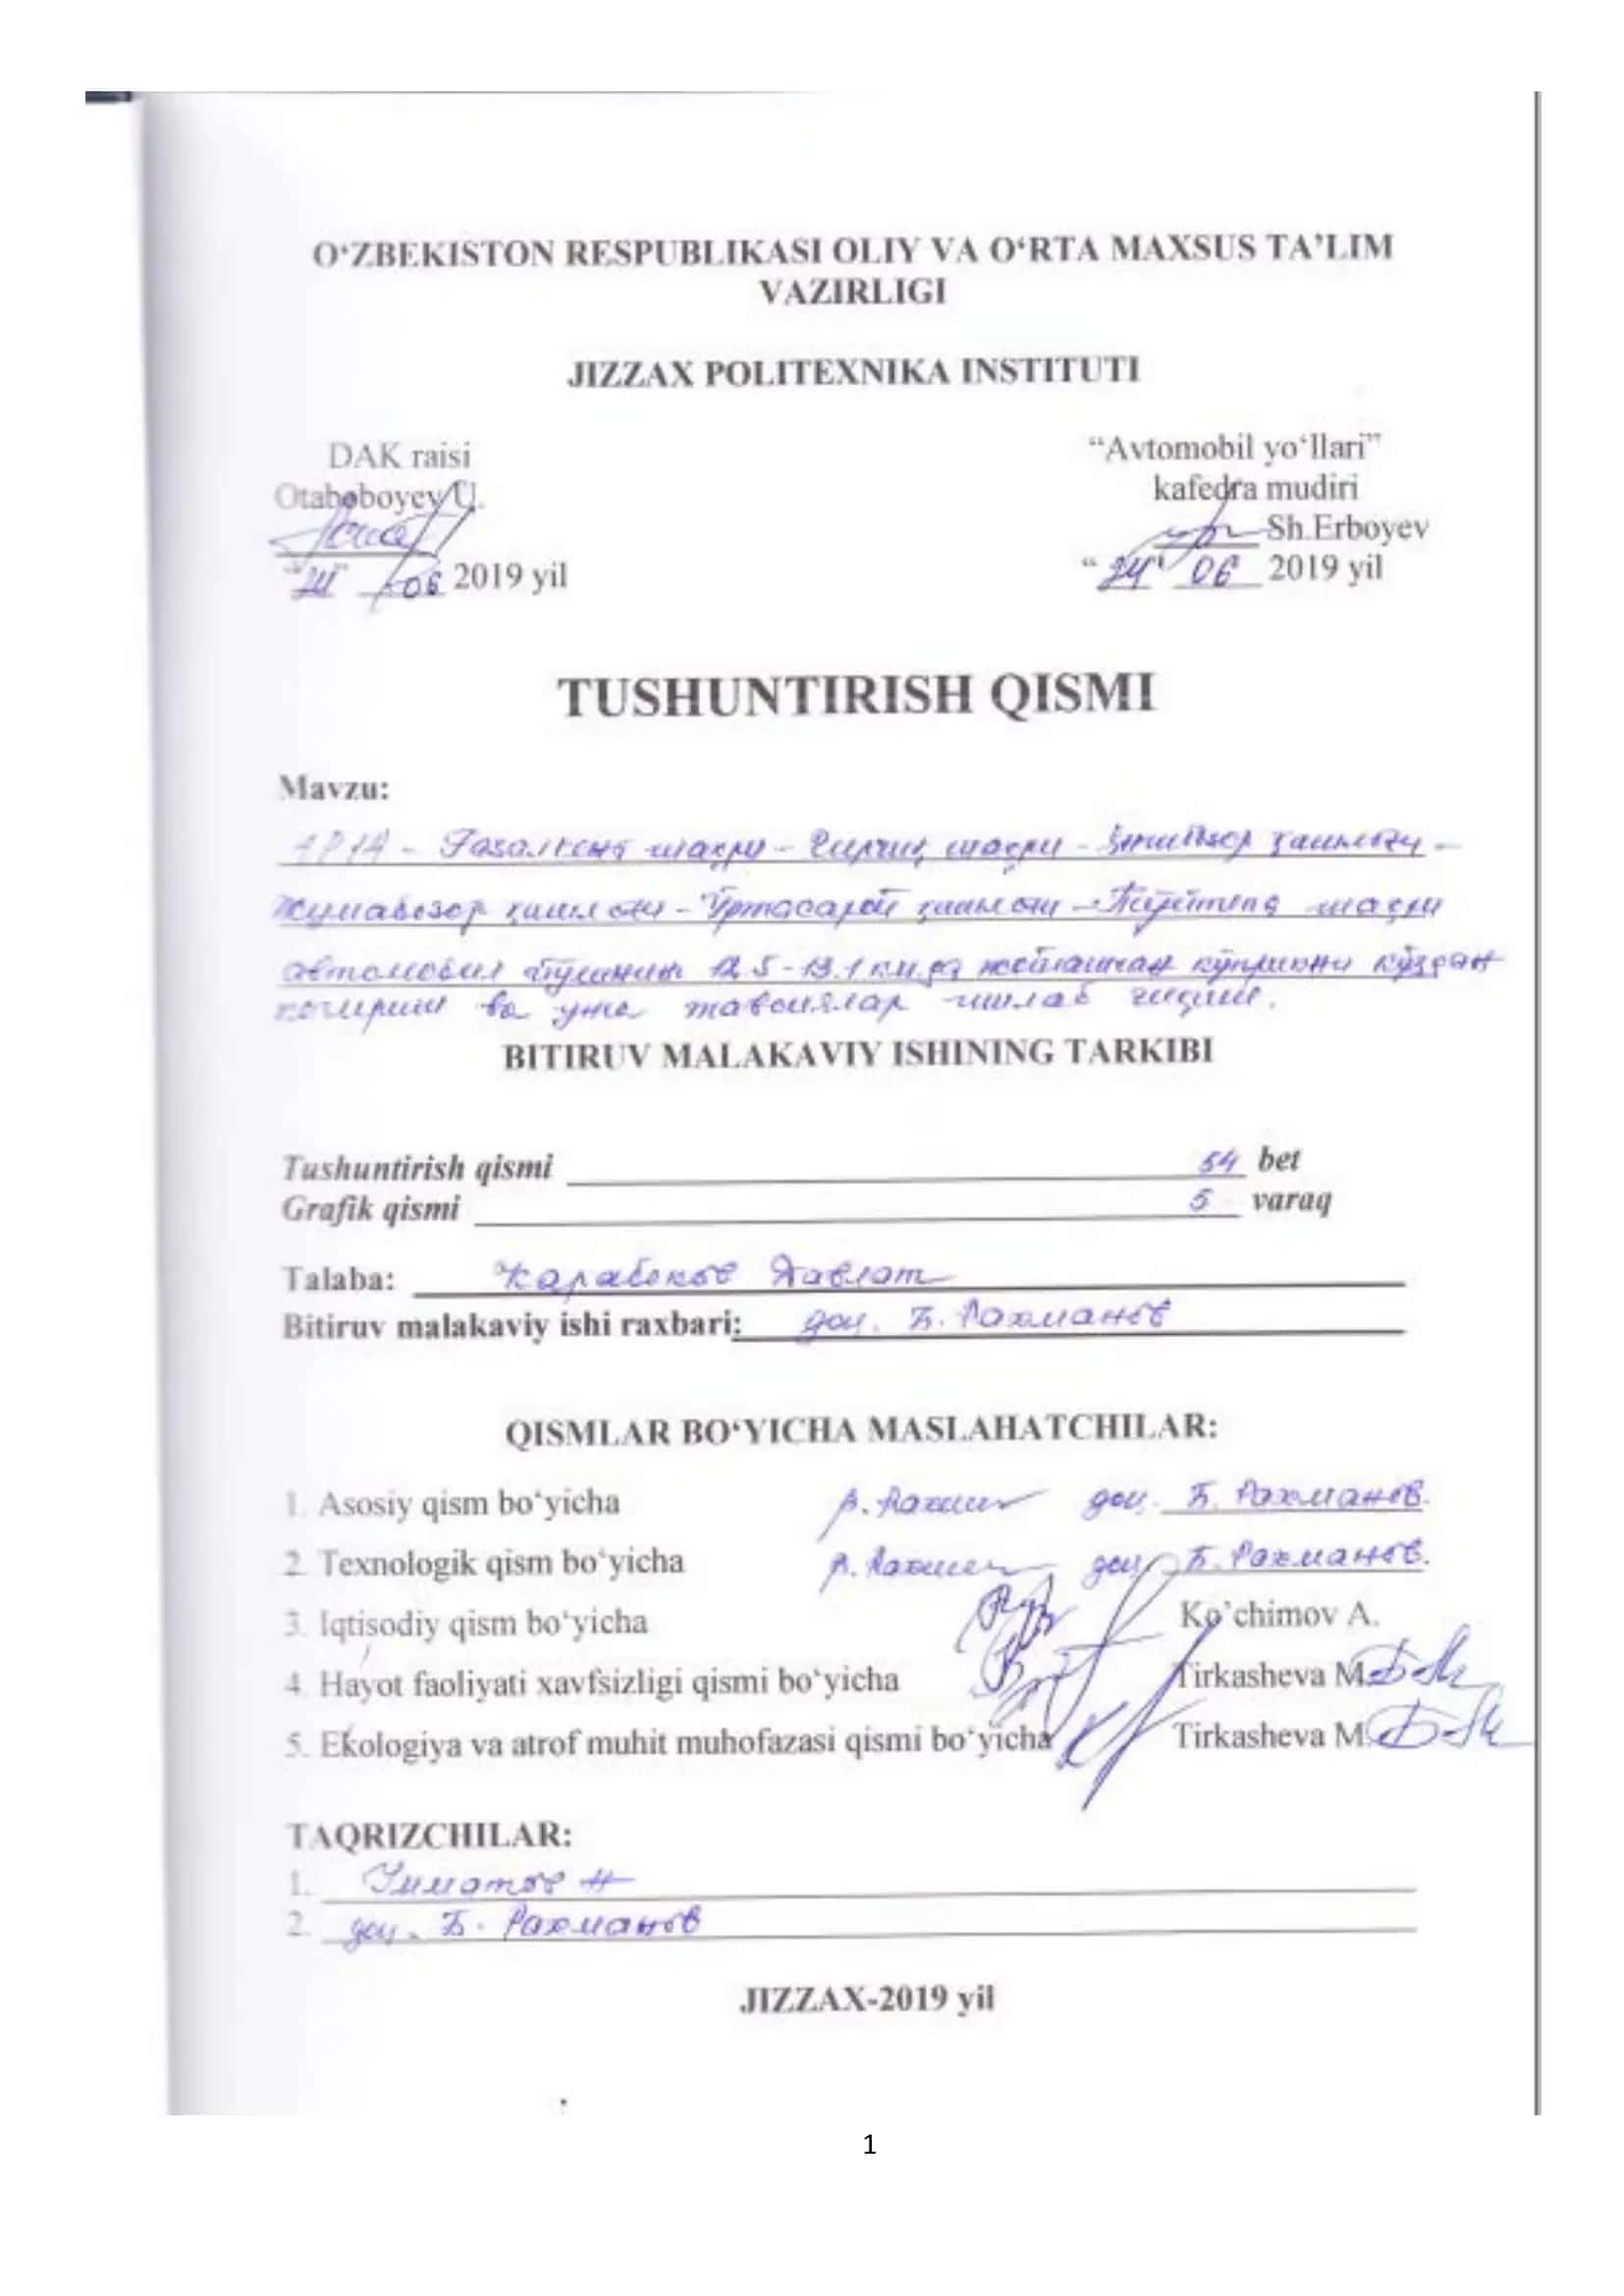 O‘ZBEKISTON RESPUBLIKASI OLIY VA O‘RTA MAXSUS TA’LIM
VAZIRLIGI
JIZZAX POLITEXNIKA INSTITUTI
DAK raisi
Otaboboyev U.
" " 06 2019 yil
“Avtomobil yo‘llari”
kafedra mudiri
Sh.Erboyev
“24" 06 2019 yil
TUSHUNTIRISH QISMI
Mavzu:
Ғазалкент шаҳри - Чирчиқ шаҳри - қишлоғи -
Жумабозор қишлоғи - Ўртасарой қишлоғи - Тўйтепа шаҳри
автомобил йўлининг 12.5-13.1 км.да жойлашган кўприкни кўздан
кечириш ва унга тавсиялар ишлаб чиқиш.
BITIRUV MALAKAVIY ISHINING TARKIBI
Tushuntirish qismi 54 bet
Grafik qismi 5 varaq
Talaba: Карабеков Давлат
Bitiruv malakaviy ishi raxbari: доц. Б. Рахманов
QISMLAR BO‘YICHA MASLAHATCHILAR:
1. Asosiy qism bo‘yicha доц. Б. Рахманов.
2. Texnologik qism bo‘yicha доц. Б. Рахманов.
3. Iqtisodiy qism bo‘yicha Ko’chimov A.
4. Hayot faoliyati xavfsizligi qismi bo‘yicha Tirkasheva M.
5. Ekologiya va atrof muhit muhofazasi qismi bo‘yicha Tirkasheva M.
TAQRIZCHILAR:
1. Н
2. доц. Б. Рахманов
JIZZAX-2019 yil
1